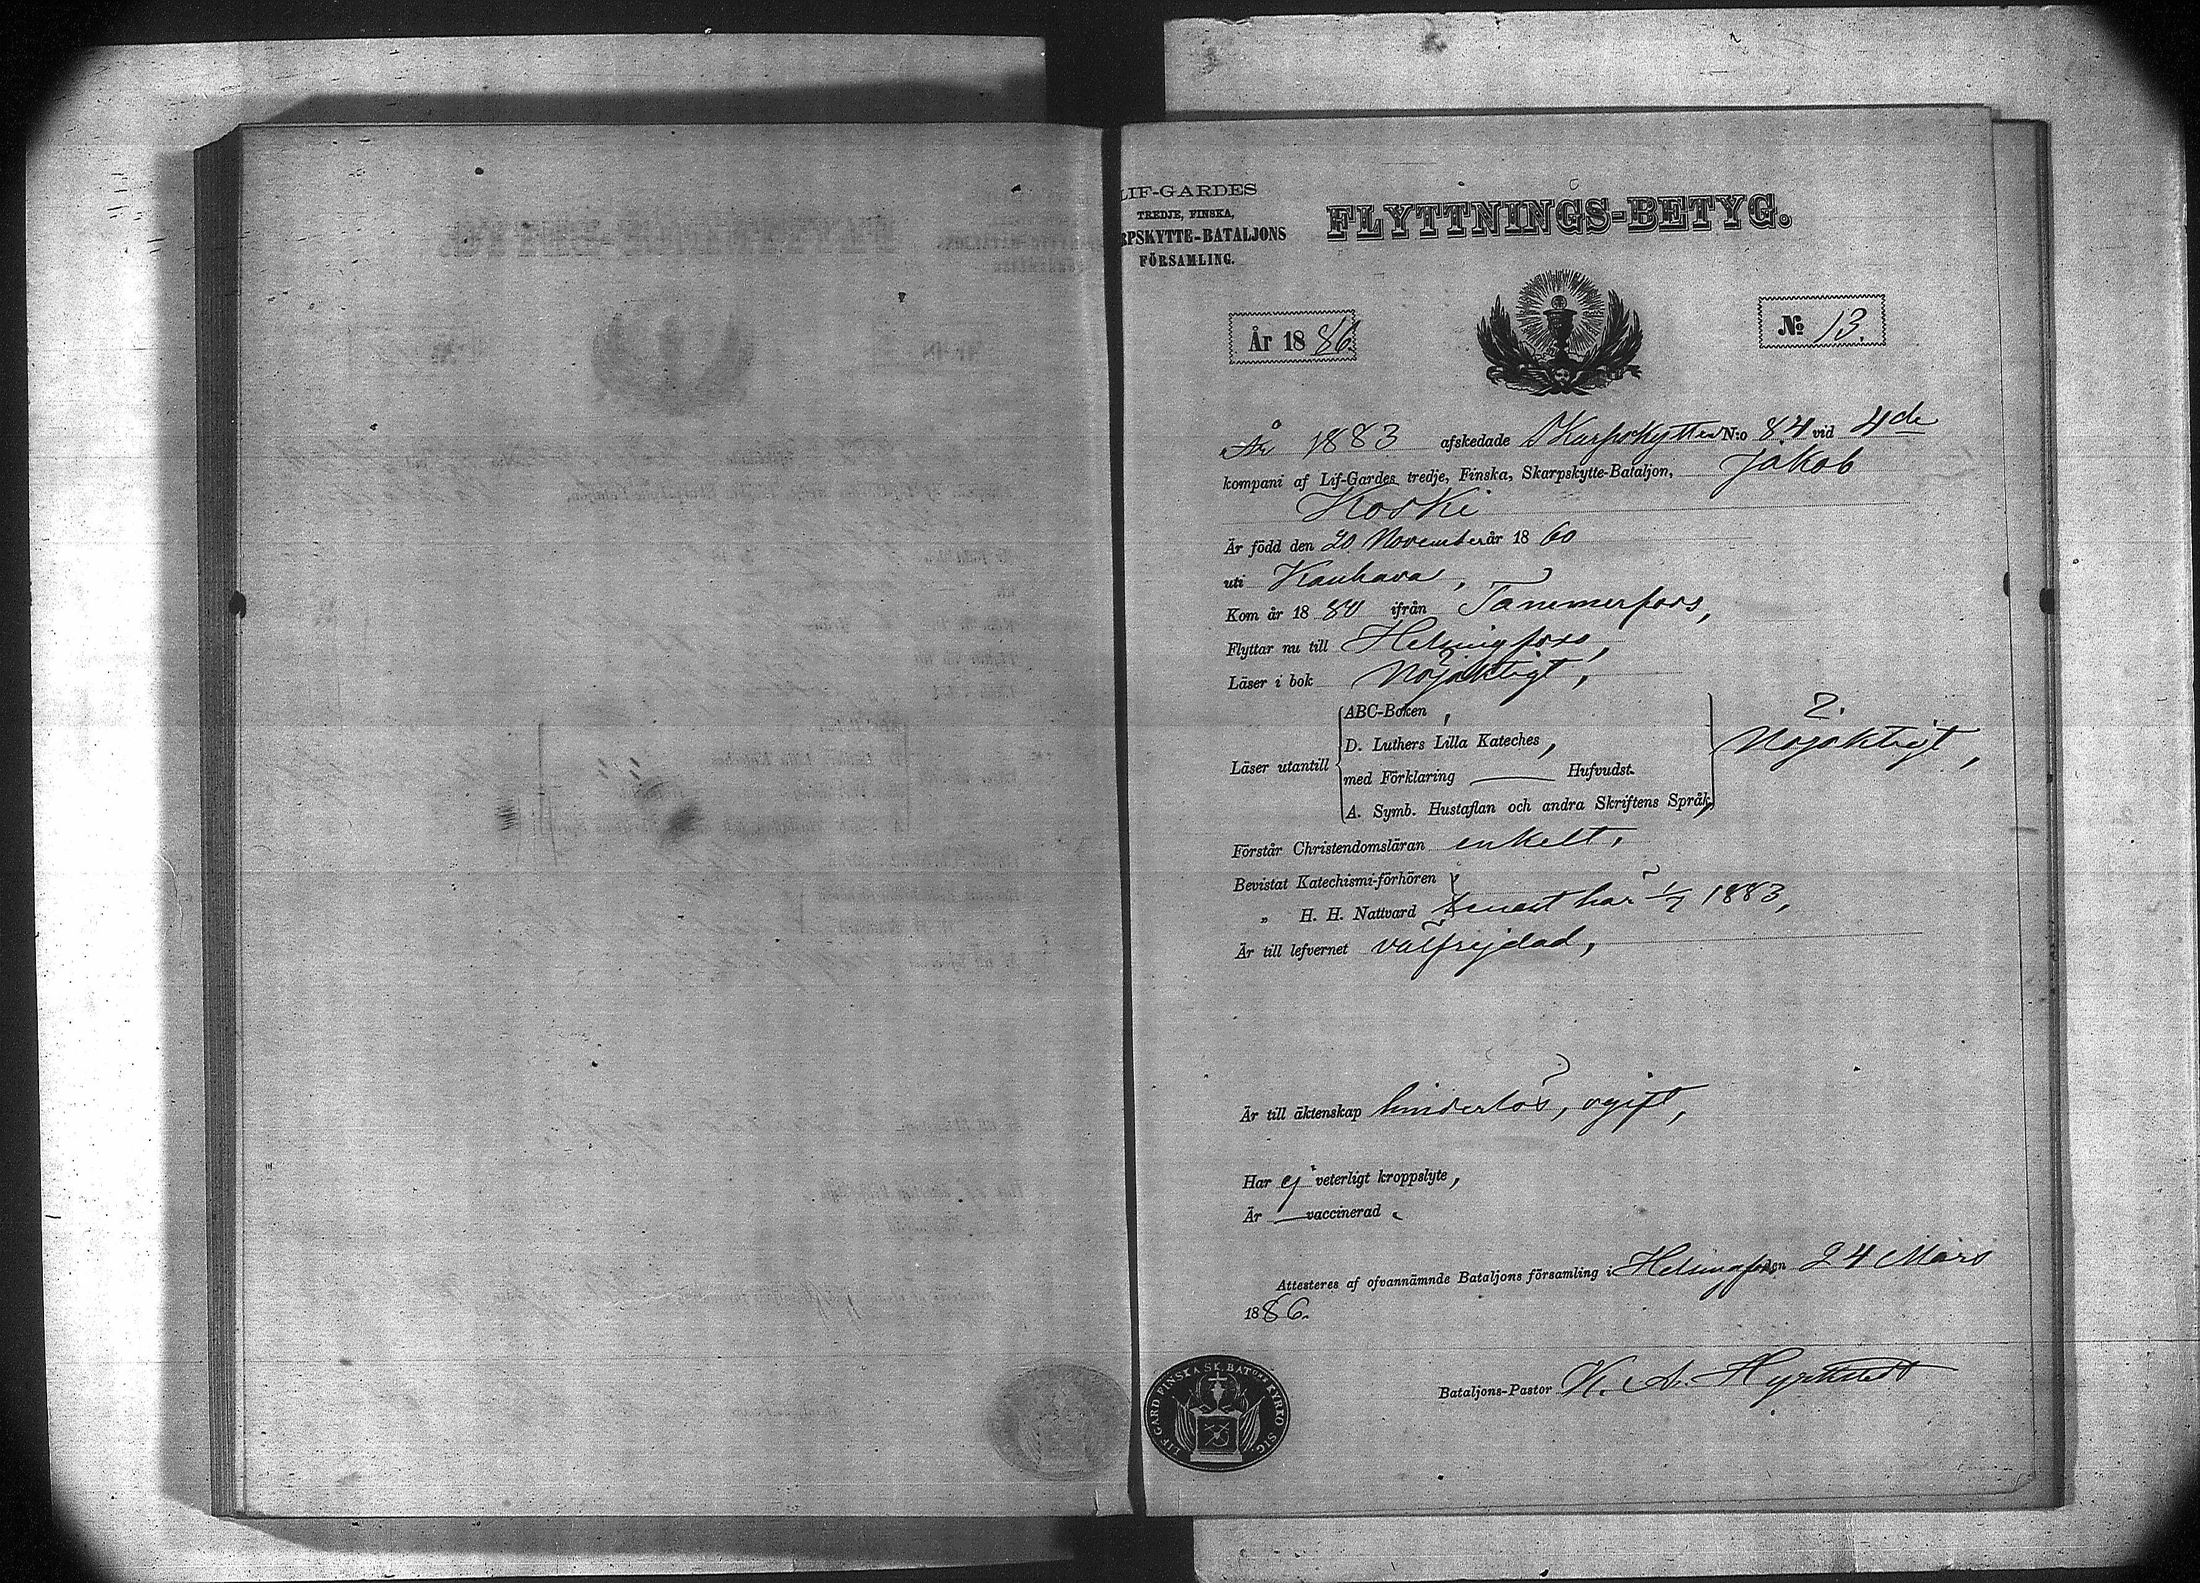 LIF-GARDES
TREDJE, FINSKA,
RPSKYTTE-BATALJONS
FÖRSAMLING.
FLYTTNINGS-BETYG.
År 1886.
No 13.
År 1883 afskedade Skarpskytten N:o 84 vid 4de
kompani af Lif-Gardes tredje, Finska, Skarpskytte-Bataljon, Jakob
Koski
Är född den 20 November år 1860
uti Kauhava,
Kom år 1880 ifrån Tammerfors,
Flyttar nu till Helsingfors,
Läser i bok Nöjaktigt,
Läser utantill
ABC-Boken,
D. Luthers Lilla Kateches,
med Förklaring — Hufvudst.
A. Symb. Hustaflan och andra Skriftens Språk,
2.
Nöjaktigt,
Förstår Christendomsläran enkelt,
Bevistat Katechismi-förhören
„ H. H. Nattvard senast här 1/7 1883,
Är till lefvernet välfrejdad,
Är till äktenskap hinderlös, ogift,
Har ej veterligt kroppslyte,
Är — vaccinerad.
Attesteres af ofvannämnde Bataljons församling i Helsingfors den 24 Mars
1886.
Bataljons-Pastor K. A. Hyrkstedt
LIF-GARD FINSKA SK. BATONS KYRKO SIG.